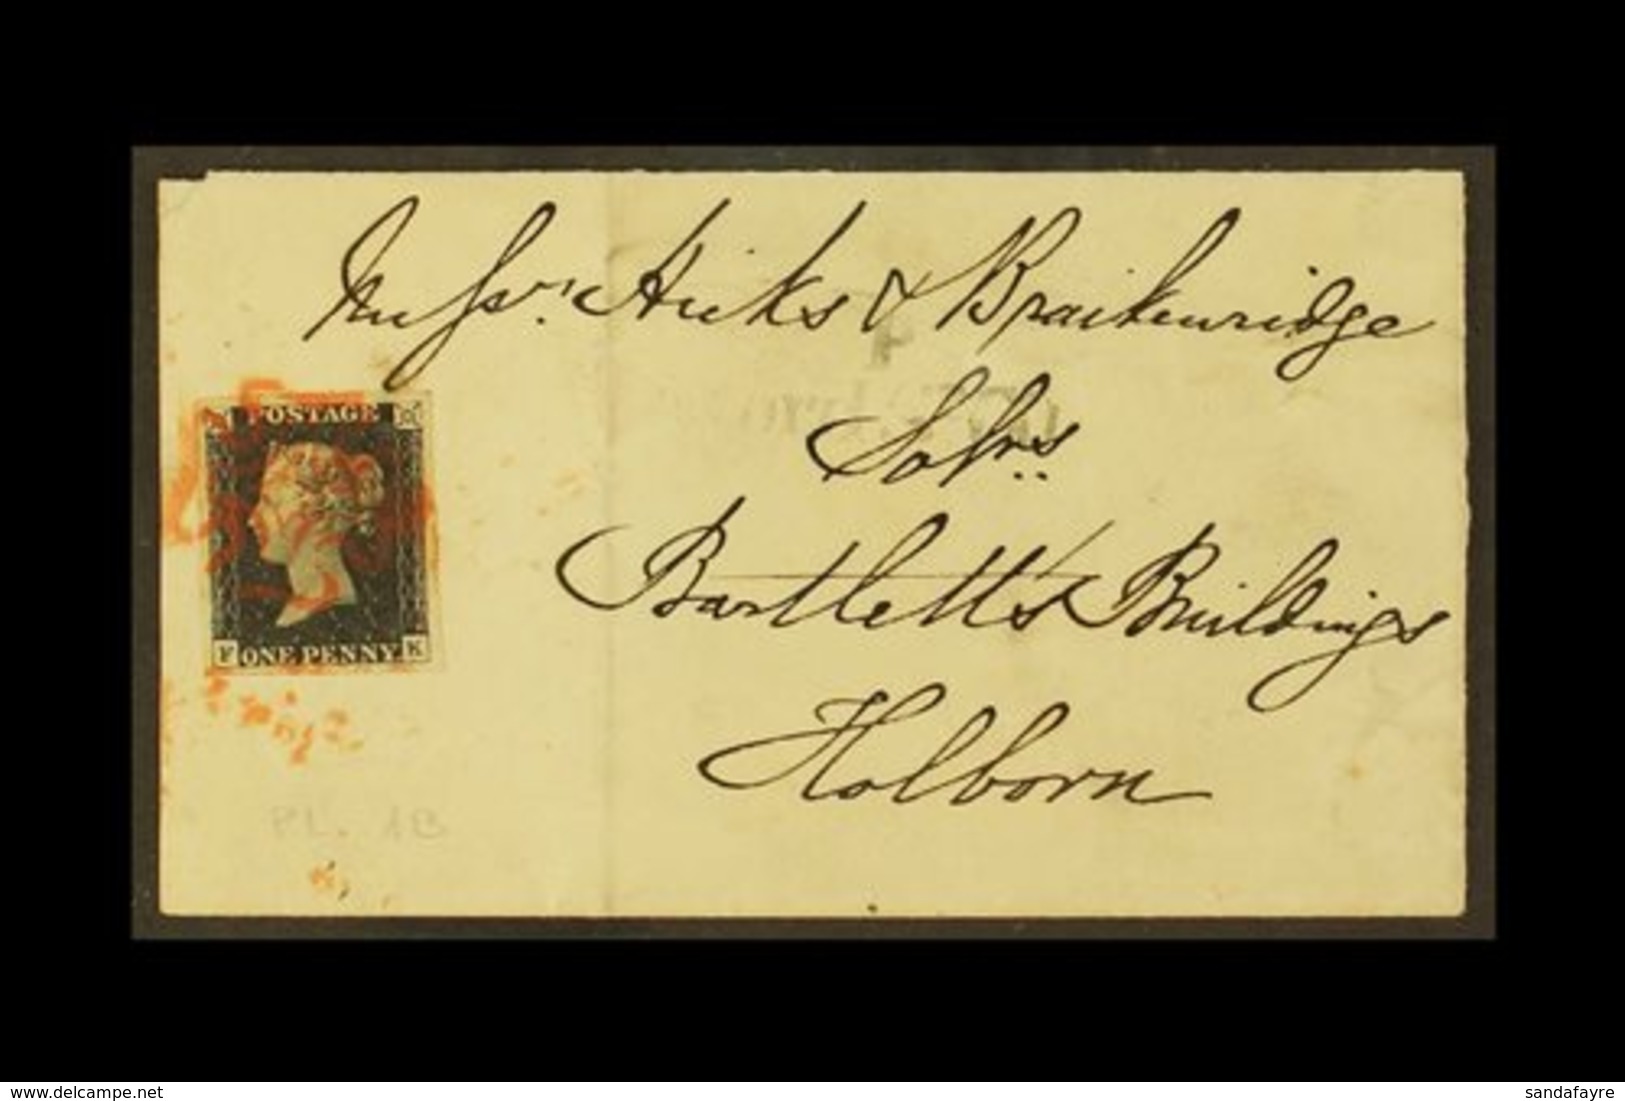 Messrs. Hicks & Braikenridge
Solrs.
Bartlett's Buildings
Holborn
POSTAGE
F ONE PENNY K
PL. 1B
delcampe.net
sandafayre